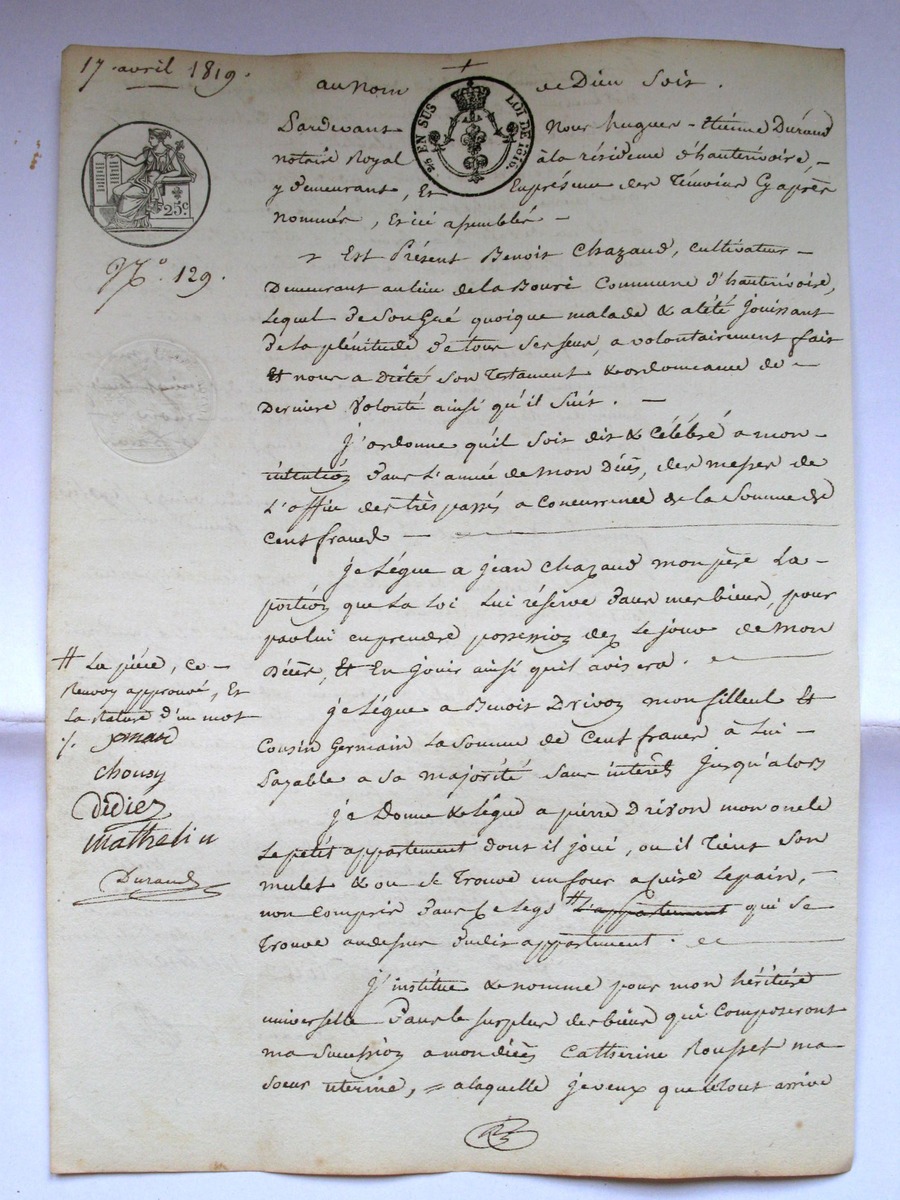 17. avril 1819.
au Nom de Dieu Soit.
2/5 EN SUS LOI DE 1816.
25c
Pardevant Nous hugues-Etienne Durand
notaire Royal à la résidence d'hauterivoire,
y demeurant, et En présence des témoins Cy après
nommés, et ici assemblés
No. 129.
Est Présent Benoit Chazaud, cultivateur
Demeurant au lieu de la Bouri Commune d'hauterivoire,
Lequel de Son gué quoique malade & alété jouissant
de la plénitude de tous Ses Sens, a volontairement fait
Et nous a Dicté Son Testament & ordonnance de
Dernière Volonté ainsi qu'il Suit.
J'ordonne qu'il Soit dit & Célébré a mon
intention dans L'année de mon Décès, des messes de
L'office des très passés a concurrence de la Somme de
Cent francs
Je Légue a jean Chazaud mon père La
portion que La Loi Lui réserve dans mes biens, pour
par lui en prendre possession dez Le jour de mon
Décès, Et En jouir ainsi quil avisera.
Je Légue a Benoit Drivon mon filleul Et
Cousin Germain La Somme de Cent francs à Lui
Payable a Sa majorité Sans intérêts Jusqu'alors
Je Donne & Légue a pierre Drivon mon oncle
Le petit appartement dont il joui, ou il Tient Son
mulet & ou Se Trouve un four a Cuire Le pain,
non Compris dans Ce Legs # L'appartement qui Se
Trouve au dessus dudit appartement.
J'institue & nomme pour mon héritière
universelle dans le Surplus des biens qui Composeront
ma Succession a mon décès Catherine Rousset ma
Soeur uterine, = a laquelle je veux que le tout arrive
# La pièce, Ce
Renvoy approuvé, Et
La Rature d'un mot
chouzy
Didier
Mathelin
Durand